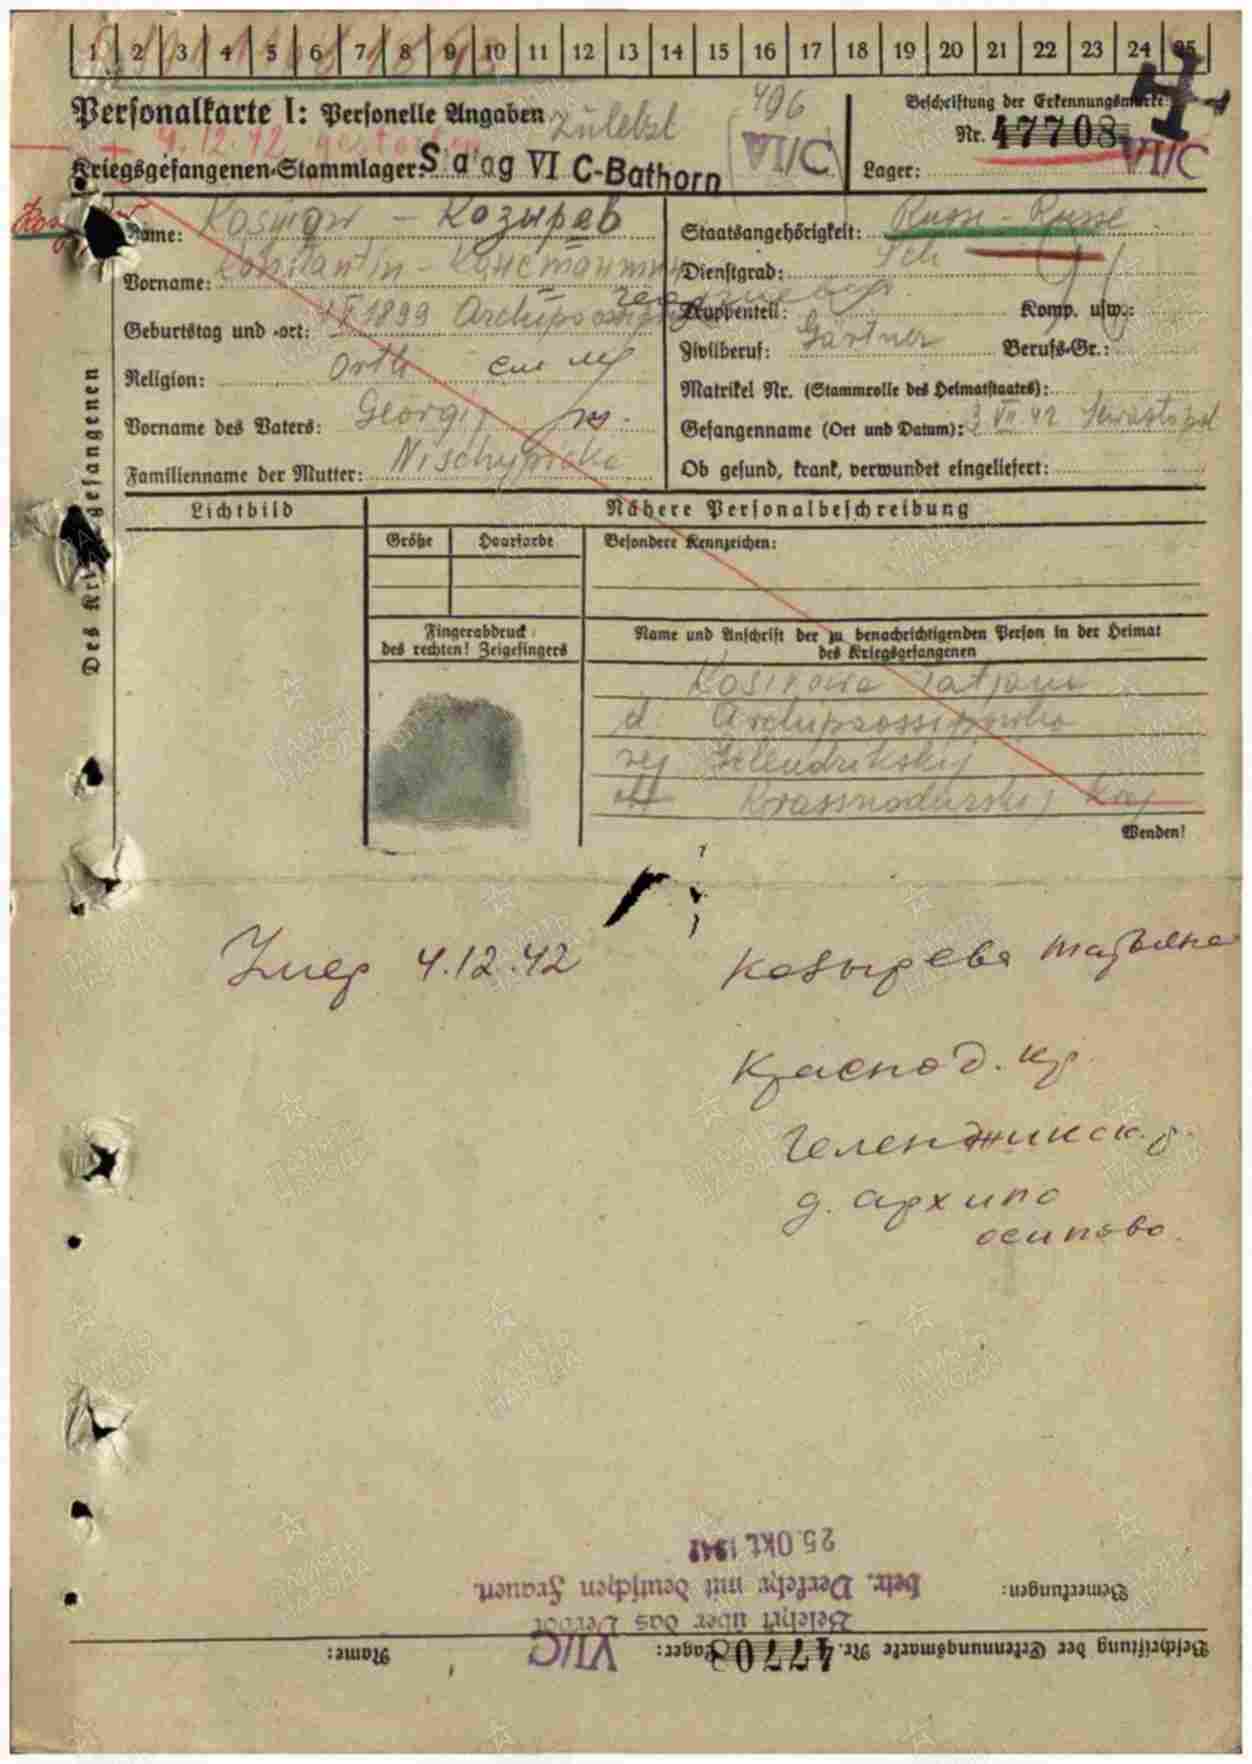 1 2 3 4 5 6 7 8 9 10 11 12 13 14 15 16 17 18 19 20 21 22 23 24 25
Personalkarte I: Personelle Angaben
zuletzt
496
Beschriftung der Erkennungsmarke:
Nr. 47708
4.12.42 gestorben
Kriegsgefangenen-Stammlager: Sa ag VI C-Bathorn
VI/C
Lager: VI/C
Name: Козырев
Staatsangehörigkeit: Russ - Russe
Vorname: Konstantin - Константин
Dienstgrad:
Truppenteil: Komp. usw.:
Geburtstag und -ort: 1899
Zivilberuf: Gärtner Berufs-Gr.:
Religion: Orth
Matrikel Nr. (Stammrolle des Heimatstaates):
Vorname des Vaters: Georgij
Gefangennahme (Ort und Datum): 3 VII 42 Sewastopol
Familienname der Mutter:
Ob gesund, krank, verwundet eingeliefert:
Des Kri gefangenen
Lichtbild
Nähere Personalbeschreibung
Größe
Haarfarbe
Besondere Kennzeichen:
Fingerabdruck
des rechten! Zeigefingers
Name und Anschrift der zu benachrichtigenden Person in der Heimat
des Kriegsgefangenen
Tatjana
d. Archipzossipowka
rej Gelendzikskij
Krassnodarskij Kraj
Wenden!
Умер 4.12.42
Козырева Татьяна
Краснод. кр.
Геленджикск. р.
д. Архипо
осипово.
Beschriftung der Erkennungsmarke Nr. 47708 Lager: VI/C Name:
Belehrt über das Verbot
Bemerkungen: betr. Verkehr mit deutschen Frauen.
25. OKT. 1942
ПАМЯТЬ НАРОДА